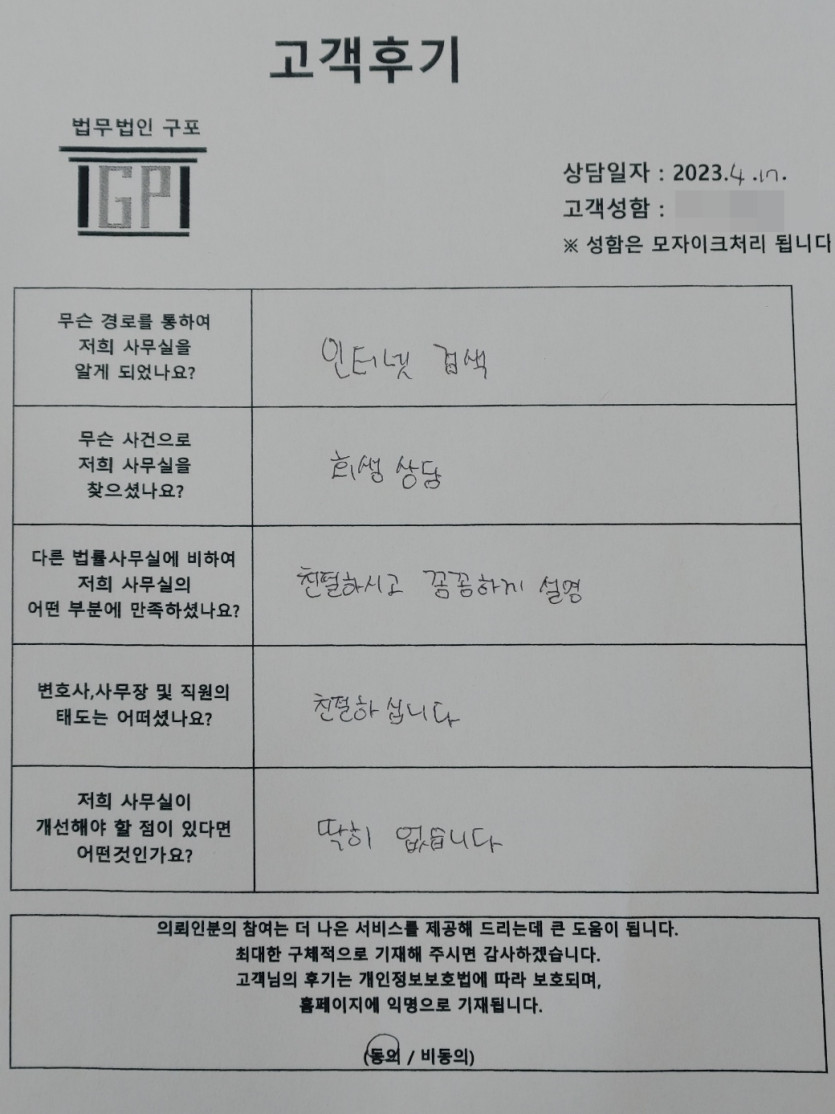 고객후기
법무법인 구포
GP
상담일자 : 2023.4.17.
고객성함 :
※ 성함은 모자이크처리 됩니다
무슨 경로를 통하여
저희 사무실을
알게 되었나요?
인터넷 검색
무슨 사건으로
저희 사무실을
찾으셨나요?
회생 상담
다른 법률사무실에 비하여
저희 사무실의
어떤 부분에 만족하셨나요?
친절하시고 꼼꼼하게 설명
변호사,사무장 및 직원의
태도는 어떠셨나요?
친절하십니다
저희 사무실이
개선해야 할 점이 있다면
어떤것인가요?
딱히 없습니다
의뢰인분의 참여는 더 나은 서비스를 제공해 드리는데 큰 도움이 됩니다.
최대한 구체적으로 기재해 주시면 감사하겠습니다.
고객님의 후기는 개인정보보호법에 따라 보호되며,
홈페이지에 익명으로 기재됩니다.
(동의 / 비동의)